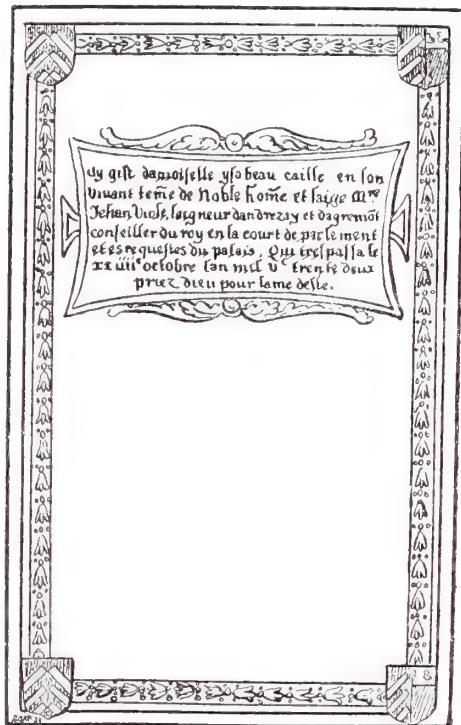 Cy gist damoiselle ysabeau caille en son
vivant fem̄e de Noble hom̄e et saige Mre
Jehan Viole, seigneur dandrezay et dagremōt
conseiller du roy en la court de parlement
et es requestes du palais, Qui trespassa le
xxiiiie octobre lan mil vc trente deux
priez dieu pour lame delle.